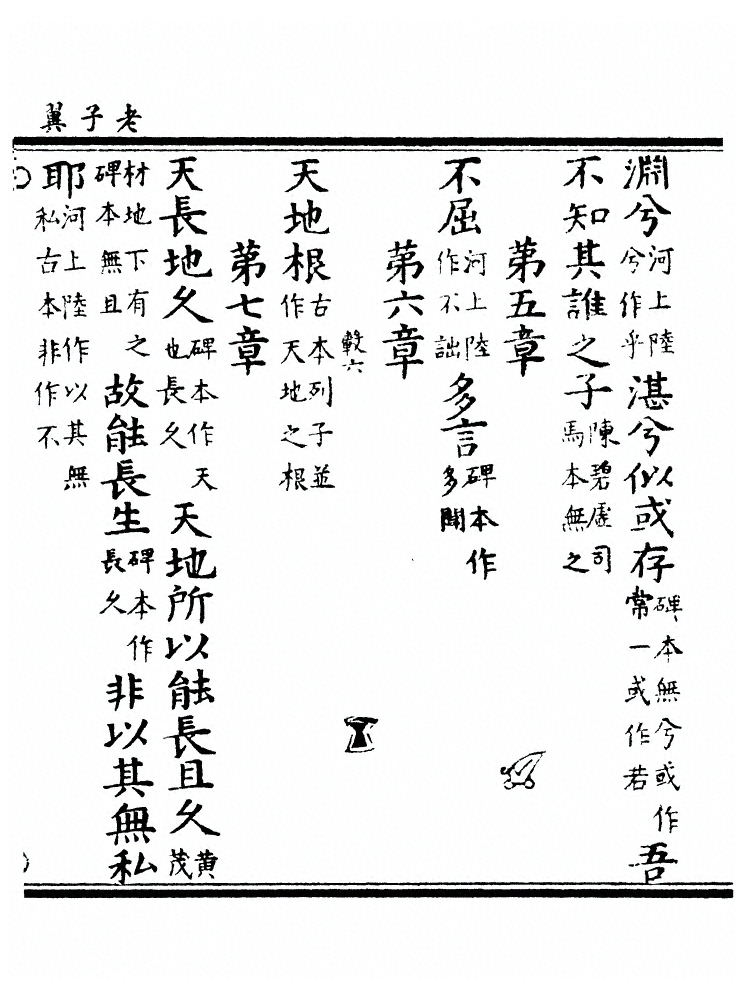 老子翼
淵兮河上陸兮作乎湛兮似或存碑本無兮或作常一或作若吾
不知其誰之子陳碧虛司馬本無之
第五章
不屈河上陸作不詘多言碑本作多聞
第六章
六
天地根古本列子並作天地之根
第七章
天長地久碑本作天也長久天地所以能長且久黄茂
材地下有之碑本無且故能長生碑本作長久非以其無私
耶河上陸作以其無私古本非作不